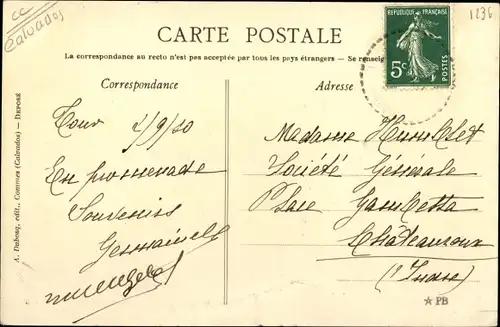 cc
Calvados
CARTE POSTALE
La correspondance au recto n'est pas acceptée par tous les pays étrangers — Se renseig
RÉPUBLIQUE FRANÇAISE
5c
POSTES
1236
Correspondance
Adresse
A. Dubosq, édit., Commes (Calvados) — DÉPOSÉ
2/9/10
En promenade
Souvenirs
Madame
Société Générale
Place Gambetta
Châteauroux
(Indre)
PB